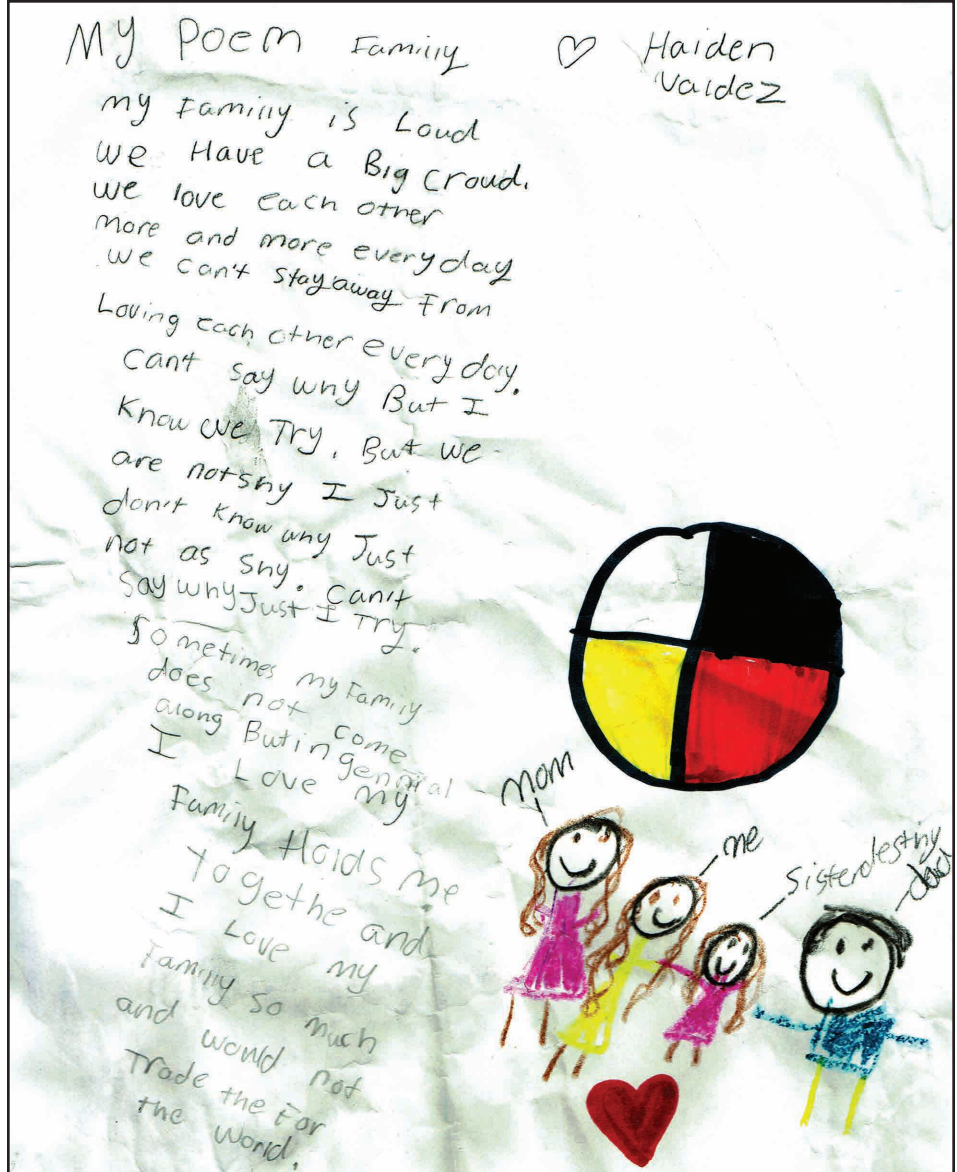 My Poem Familly ♡ Haiden
Valdez
my Familly is Loud
we Have a Big croud.
we love each other
more and more everyday
we can't stay away From
Loving each other every day.
can't say why But I
Know we Try, But we
are not shy I Just
don't know why Just
not as shy. can't
Say why Just I Try.
Sometimes my Familly
does not come
along But in gennral
I Love my
Familly Holds me
Togethe and
I Love my
Familly so much
and would not
Trade the For
the world.
mom
me
Sister destiny
dad